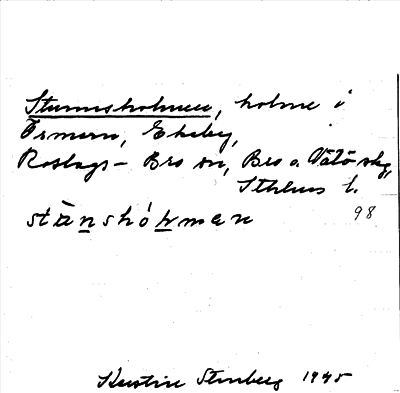 Stumsholmen, holme i
Ermern, Ekeby,
Roslags-Bro sn, Bro o. Vätö skg,
Sthlms l.
98
Kerstin Stenberg 1945